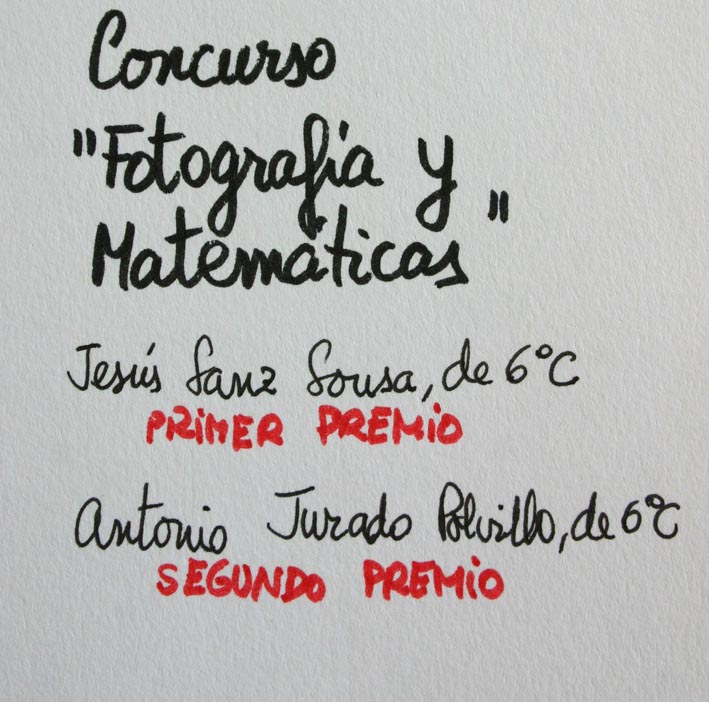 Concurso
"Fotografía y
Matemáticas"
Jesús Sanz Sousa, de 6ºC
PRIMER PREMIO
Antonio Jurado Polvillo, de 6ºC
SEGUNDO PREMIO